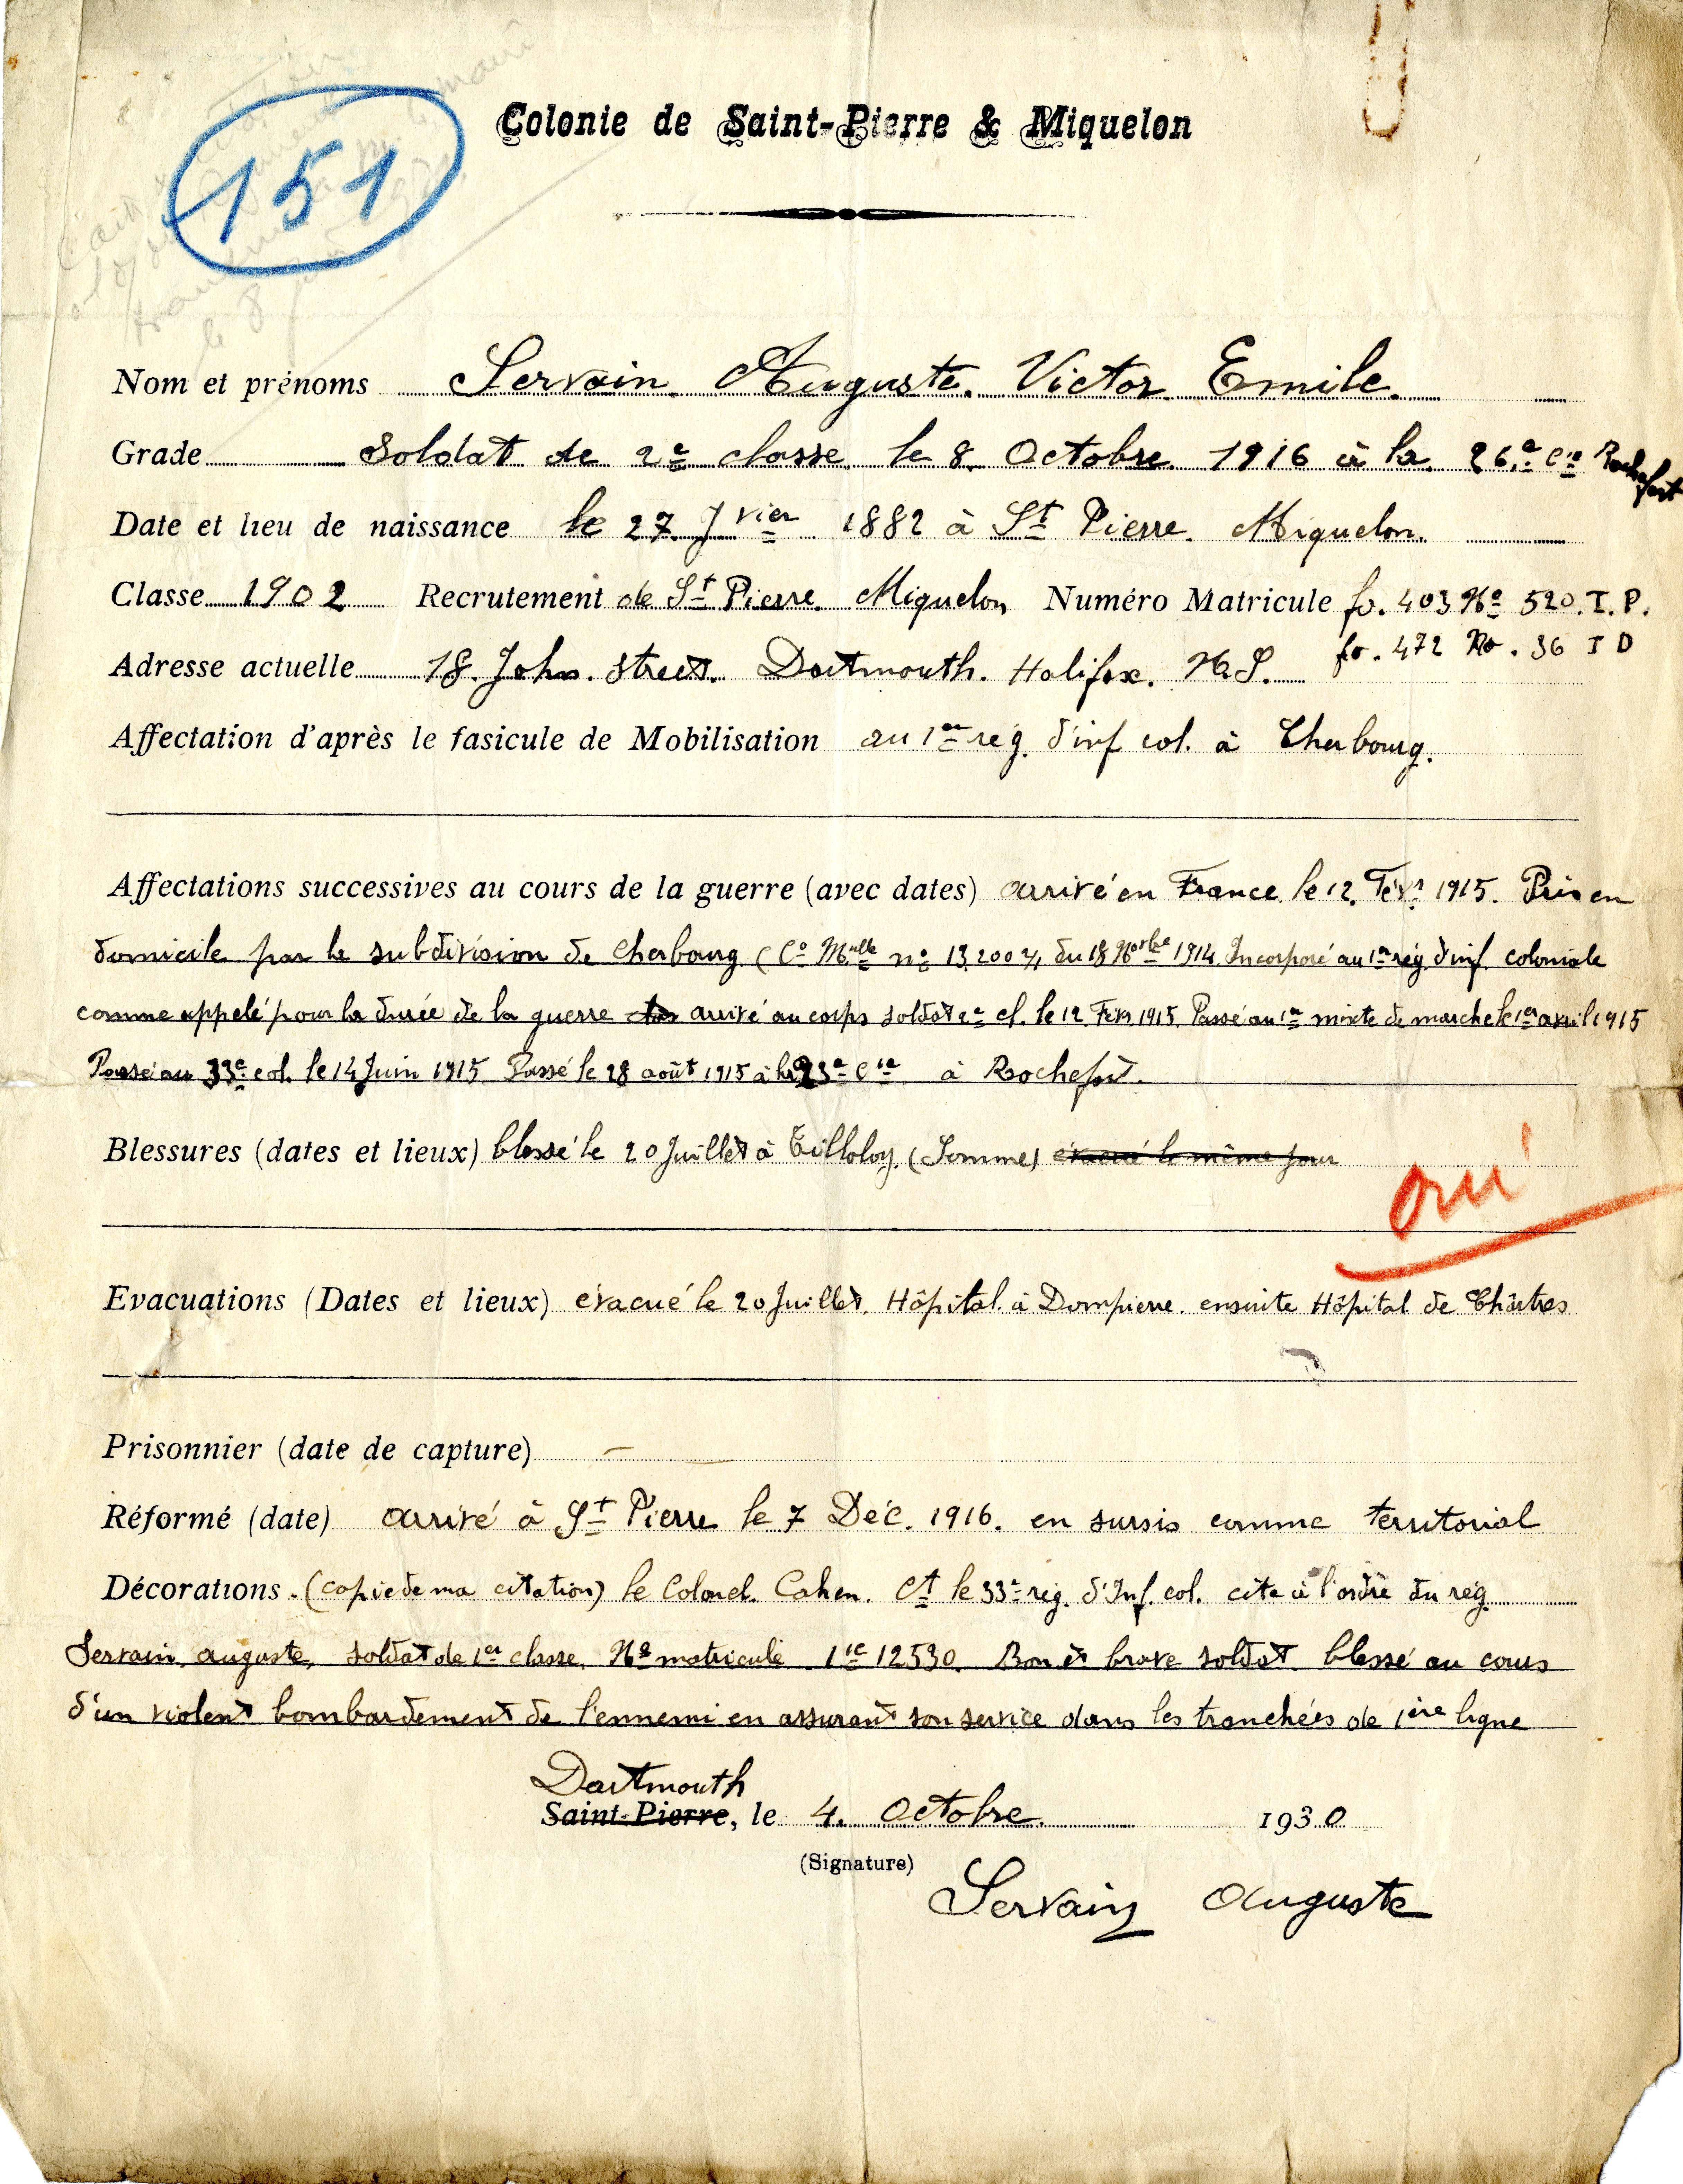 Colonie de Saint-Pierre & Miquelon
151
Nom et prénoms Servain Auguste. Victor Emile.
Grade Soldat de 2e classe le 8 Octobre 1916 à la 26e Cie Rochefort
Date et lieu de naissance le 27 Jvier 1882 à St Pierre. Miquelon.
Classe 1902 Recrutement de St Pierre Miquelon Numéro Matricule fo. 403 No 520. I. P.
fo. 472 No. 36 I D
Adresse actuelle 18. John. Street. Dartmouth. Halifax. N. S.
Affectation d'après le fasicule de Mobilisation au 1er reg. d'inf col. à Cherbourg.
Affectations successives au cours de la guerre (avec dates) arrivé en France le 12. Févr 1915. Pris en
domicile par la subdivision de Cherbourg (Co Mlle no 13.200 4/1 du 18 Norbe 1914 Incorporé au 1er rég d'inf coloniale
comme appelé pour la durée de la guerre arrivé au corps soldat 2e cl. le 12 Févr 1915. Passé au 1er mixte de marche le 1er avril 1915
Passé au 33e col. le 14 Juin 1915 Passé le 28 août 1915 à la 23e Cie à Rochefort.
Blessures (dates et lieux) blessé le 20 Juillet à Tilloloy. (Somme) évacué le même jour
oui
Evacuations (Dates et lieux) évacué le 20 Juillet. Hôpital à Dompierre. ensuite Hôpital de Chârtres
Prisonnier (date de capture) —
Réformé (date) arrivé à St Pierre le 7 Déc. 1916. en sursis comme territorial
Décorations. (copie de ma citation) le Colonel. Cahen. Ct le 33e rég. d'Inf. col. cite à l'ordre du rég.
Servain, auguste, soldat de 1er classe, No matricule 1ie 12530. Bon et brave soldat. blessé au cours
d'un violent bombardement de l'ennemi en assurant son service dans les tranchées de 1ière ligne
Dartmouth
Saint-Pierre, le 4. Octobre. 1930
(Signature)
Servain Auguste